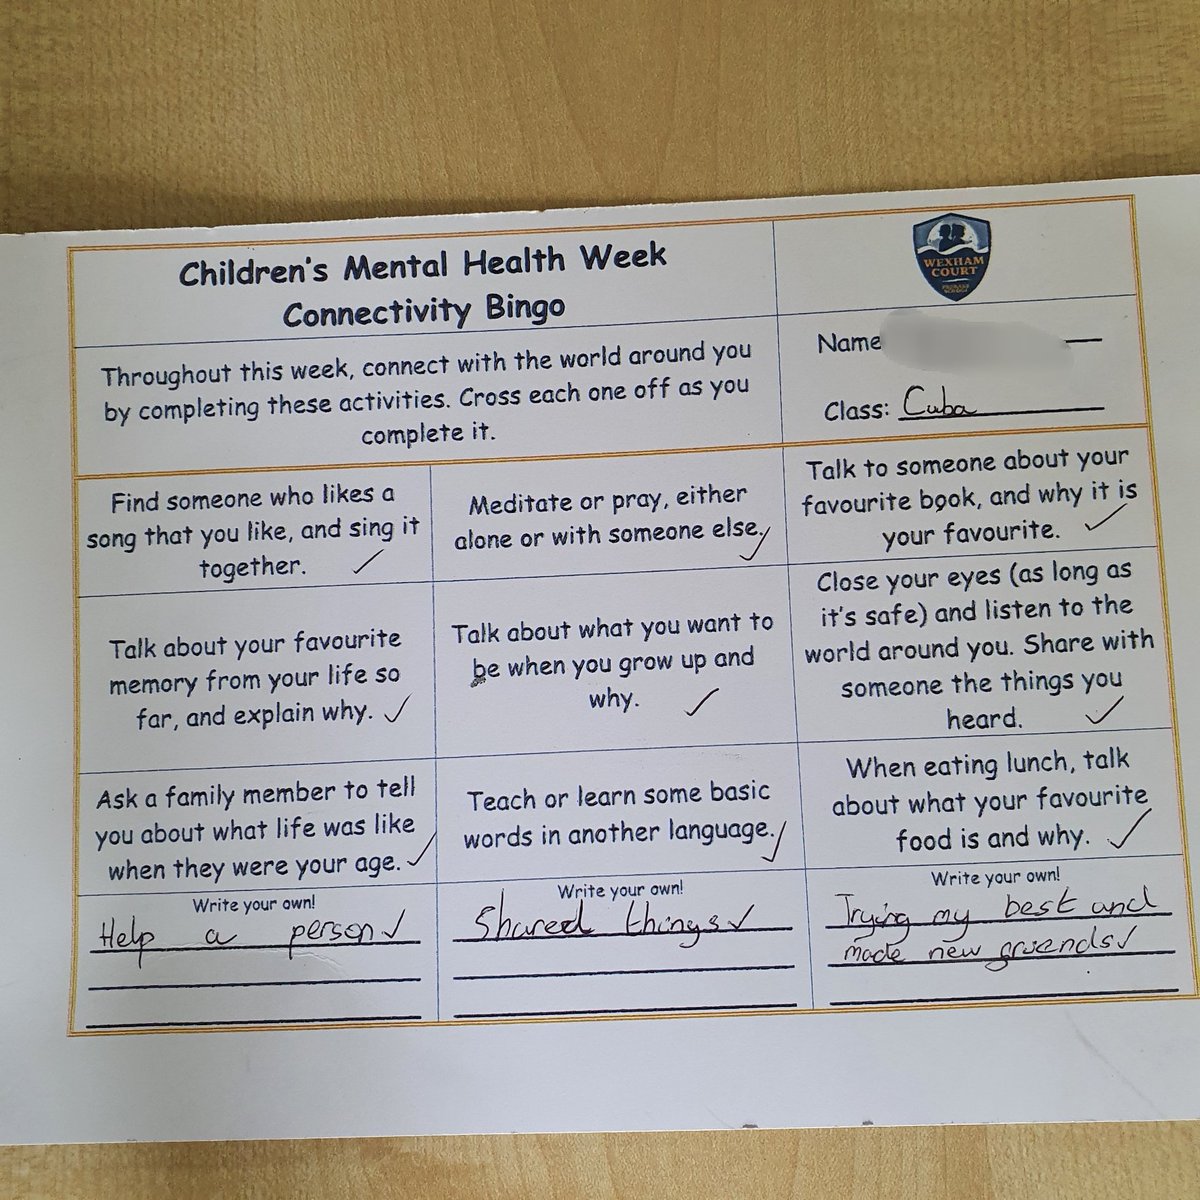 Children's Mental Health Week
Connectivity Bingo
WEXHAM
COURT
PRIMARY
SCHOOL
Throughout this week, connect with the world around you
by completing these activities. Cross each one off as you
complete it.
Name
Class: Cuba
Find someone who likes a
song that you like, and sing it
together.
Meditate or pray, either
alone or with someone else.
Talk to someone about your
favourite book, and why it is
your favourite.
Talk about your favourite
memory from your life so
far, and explain why.
Talk about what you want to
be when you grow up and
why.
Close your eyes (as long as
it's safe) and listen to the
world around you. Share with
someone the things you
heard.
Ask a family member to tell
you about what life was like
when they were your age.
Teach or learn some basic
words in another language.
When eating lunch, talk
about what your favourite
food is and why.
Write your own!
Help a person
Write your own!
Shared things
Write your own!
Trying my best and
made new gruends